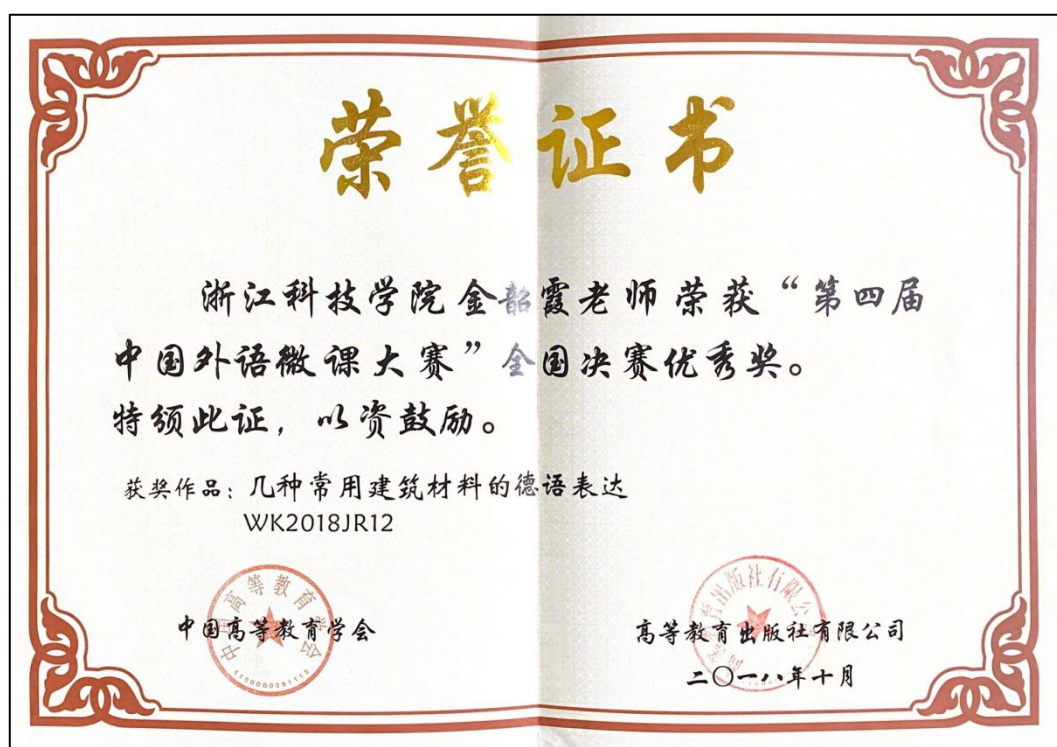 荣誉证书
浙江科技学院金韶霞老师荣获“第四届
中国外语微课大赛”全国决赛优秀奖。
特颁此证，以资鼓励。
获奖作品：几种常用建筑材料的德语表达
WK2018JR12
中国高等教育学会
中国高等教育学会
1100000091113
高等教育出版社有限公司
高等教育出版社有限公司
二〇一八年十月